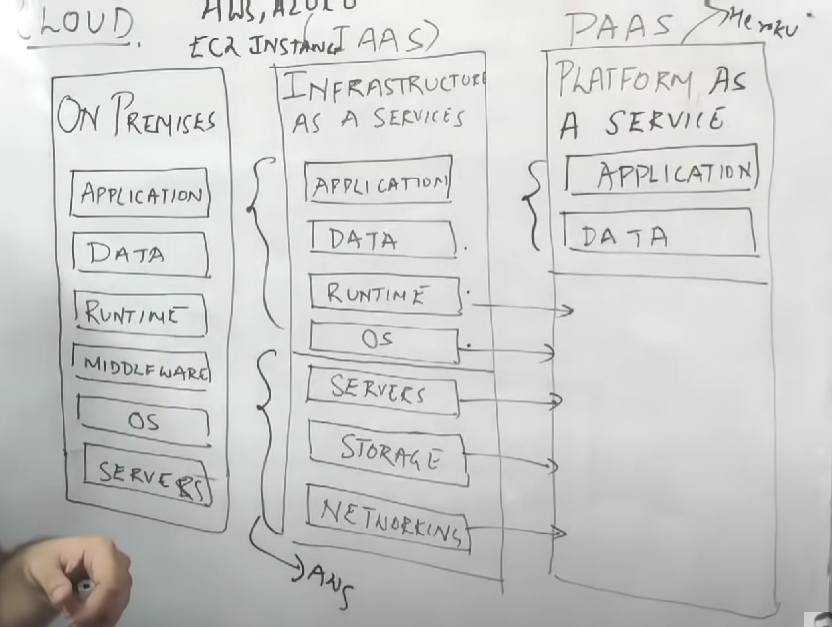 CLOUD.
AWS, AZURE
EC2 INSTANCE (IAAS)
PAAS
Heroku
ON PREMISES
APPLICATION
DATA
RUNTIME
MIDDLEWARE
OS
SERVERS
INFRASTRUCTURE
AS A SERVICES
APPLICATION
DATA
RUNTIME
OS
SERVERS
STORAGE
NETWORKING
AWS
PLATFORM AS
A SERVICE
APPLICATION
DATA